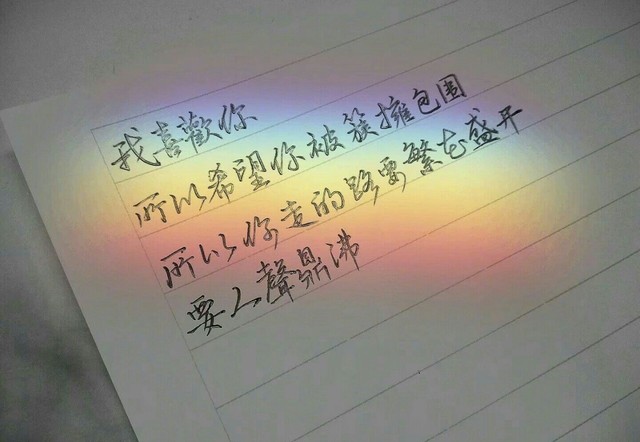 我喜歡你
所以希望你被簇擁包围
所以你走的路要繁花盛开
要人聲鼎沸